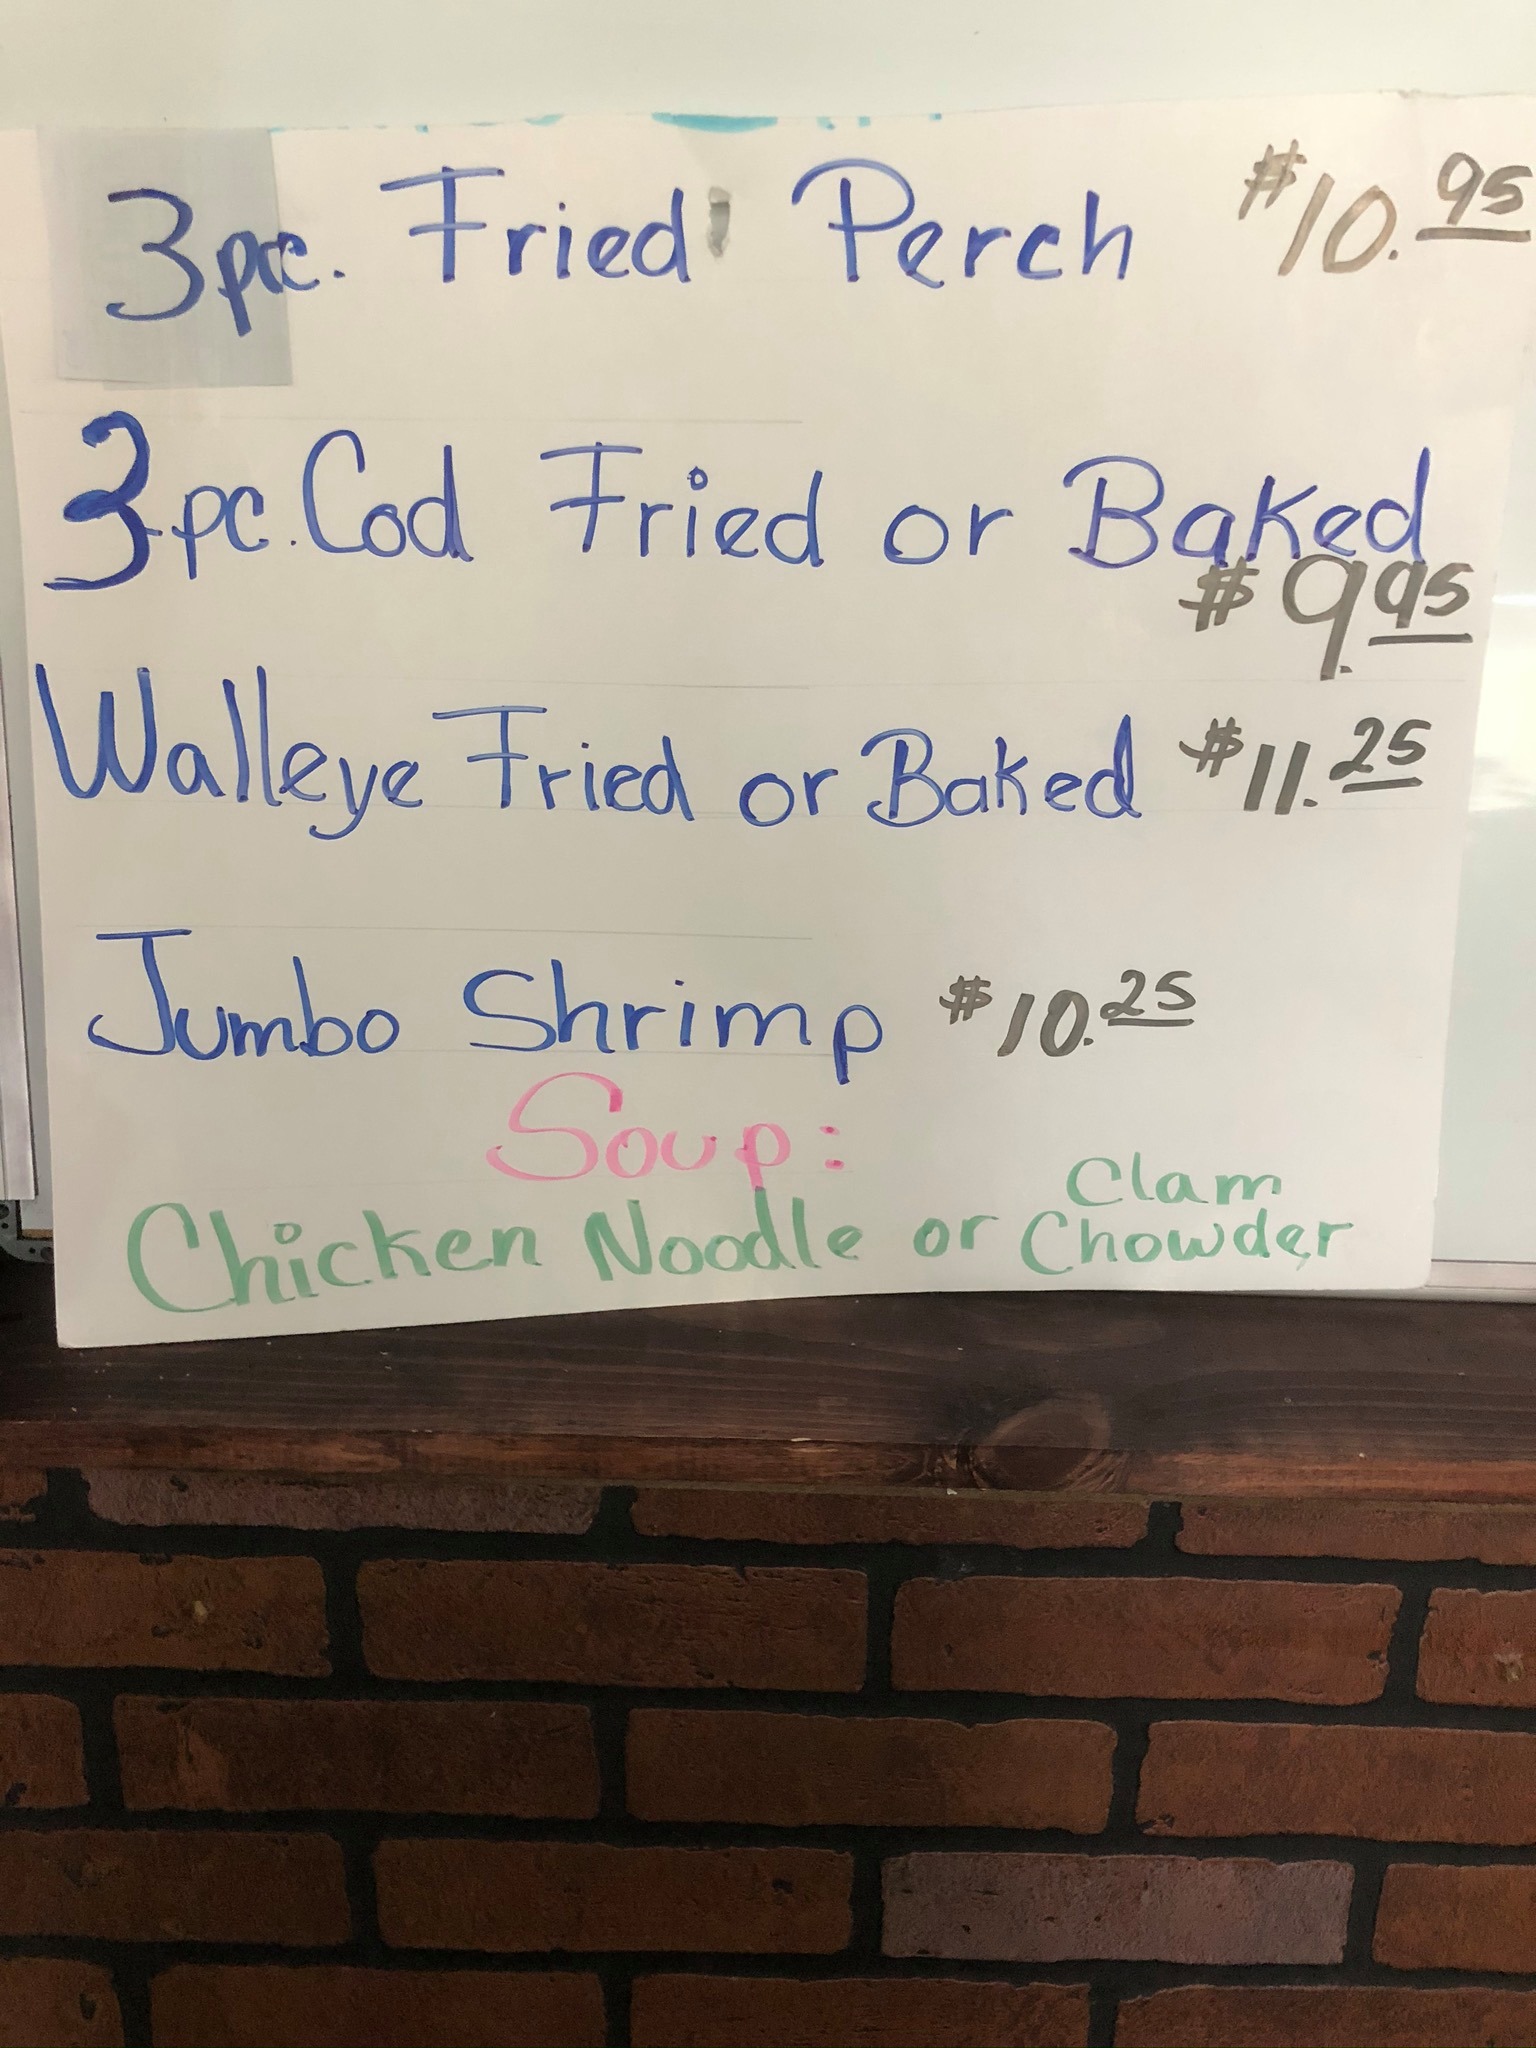 3 pc. Fried Perch $10.95
3 pc. Cod Fried or Baked
$9.95
Walleye Fried or Baked $11.25
Jumbo Shrimp $10.25
Soup:
Chicken Noodle or Clam
Chowder